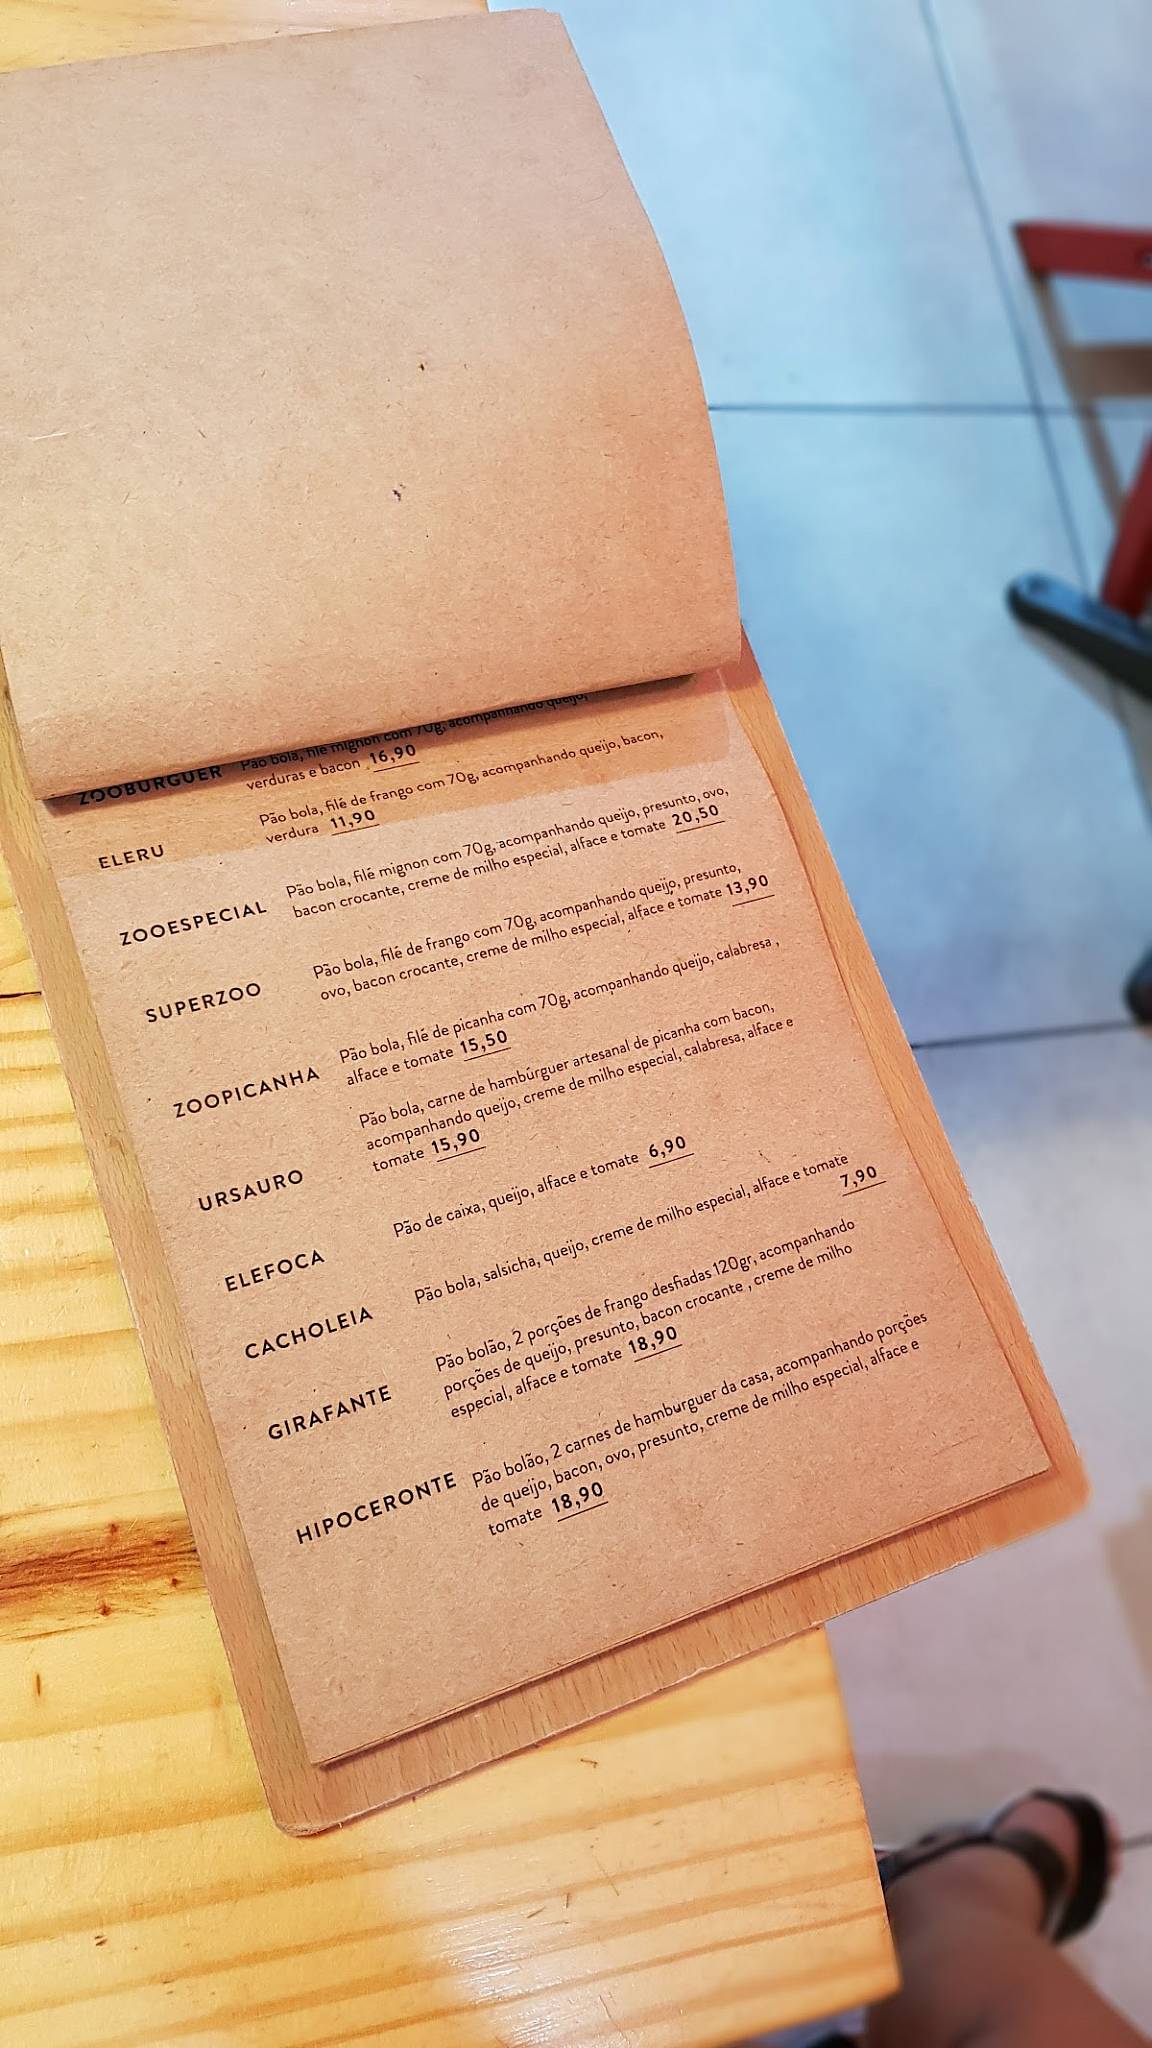 ZOOBURGUER
Pão bola, filé mignon com 70g, acompanhando queijo,
verduras e bacon 16,90
ELERU
Pão bola, filé de frango com 70g, acompanhando queijo, bacon,
verdura 11,90
ZOOESPECIAL
Pão bola, filé mignon com 70g, acompanhando queijo, presunto, ovo,
bacon crocante, creme de milho especial, alface e tomate 20,50
SUPERZOO
Pão bola, filé de frango com 70g, acompanhando queijo, presunto,
ovo, bacon crocante, creme de milho especial, alface e tomate 13,90
ZOOPICANHA
Pão bola, filé de picanha com 70g, acompanhando queijo, calabresa ,
alface e tomate 15,50
URSAURO
Pão bola, carne de hambúrguer artesanal de picanha com bacon,
acompanhando queijo, creme de milho especial, calabresa, alface e
tomate 15,90
ELEFOCA
Pão de caixa, queijo, alface e tomate 6,90
CACHOLEIA
Pão bola, salsicha, queijo, creme de milho especial, alface e tomate
7,90
GIRAFANTE
Pão bolão, 2 porções de frango desfiadas 120gr, acompanhando
porções de queijo, presunto, bacon crocante , creme de milho
especial, alface e tomate 18,90
HIPOCERONTE
Pão bolão, 2 carnes de hamburguer da casa, acompanhando porções
de queijo, bacon, ovo, presunto, creme de milho especial, alface e
tomate 18,90